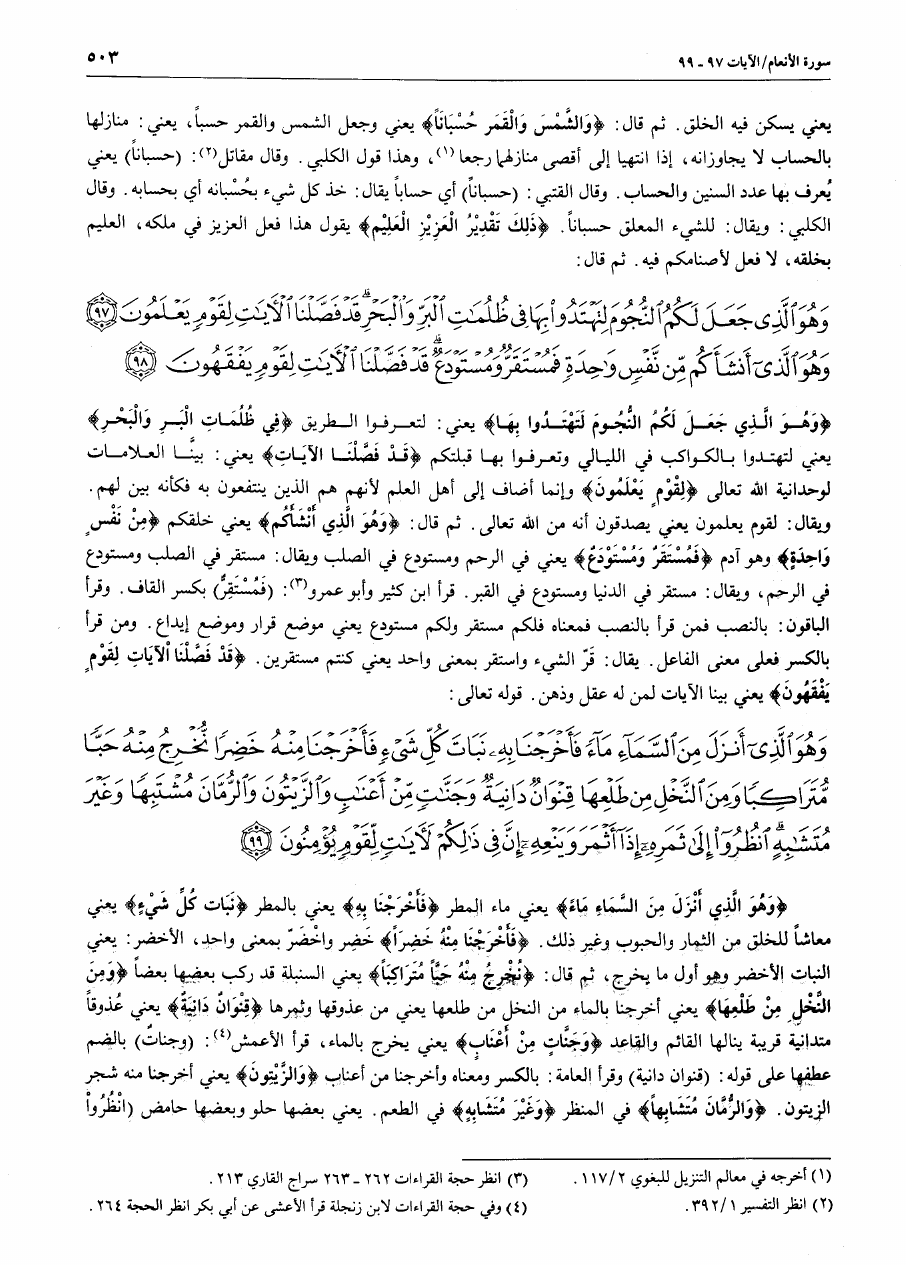 سورة الأنعام/الآيات ٩٧ ـ ٩٩
٥٠٣
يعني يسكن فيه الخلق. ثم قال: ﴿وَالشَّمْسَ وَالْقَمَر حُسْبَاناً﴾ يعني وجعل الشمس والقمر حسباً، يعني: منازلها
بالحساب لا يجاوزانه، إذا انتهيا إلى أقصى منازلهما رجعا(١)، وهذا قول الكلبي. وقال مقاتل(٢): (حسباناً) يعني
يُعرف بها عدد السنين والحساب. وقال القتبي: (حسباناً) أي حساباً يقال: خذ كل شيء بحُسْبانه أي بحسابه. وقال
الكلبي: ويقال: للشيء المعلق حسباناً. ﴿ذَلِكَ تَقْدِيْرُ الْعَزِيْزِ الْعَلِيْمِ﴾ يقول هذا فعل العزيز في ملكه، العليم
بخلقه، لا فعل لأصنامكم فيه. ثم قال:
وَهُوَ ٱلَّذِى جَعَلَ لَكُمُ ٱلنُّجُومَ لِتَهْتَدُوا۟ بِهَا فِى ظُلُمَٰتِ ٱلْبَرِّ وَٱلْبَحْرِ ۗ قَدْ فَصَّلْنَا ٱلْأَيَٰتِ لِقَوْمٍ يَعْلَمُونَ ﴿٩٧﴾
وَهُوَ ٱلَّذِىٓ أَنشَأَكُم مِّن نَّفْسٍ وَٰحِدَةٍ فَمُسْتَقَرٌّ وَمُسْتَوْدَعٌ ۗ قَدْ فَصَّلْنَا ٱلْأَيَٰتِ لِقَوْمٍ يَفْقَهُونَ ﴿٩٨﴾
﴿وَهُـوَ الَّـذِي جَعَـلَ لَكُمُ النُّجُومَ لَتَهْتَـدُوا بِهَـا﴾ يعني: لتعـرفـوا الـطريق ﴿فِي ظُلُمَـاتِ الْبَـرِ وَالْبَحْـرِ﴾
يعني لتهتـدوا بـالكـواكب في الليـالي وتعـرفـوا بهـا قبلتكم ﴿قَـدْ فَصَّلْنَـا الآيَـاتِ﴾ يعني: بينَّـا العـلامـات
لوحدانية الله تعالى ﴿لِقْوْمٍ يَعْلَمُونَ﴾ وإنما أضاف إلى أهل العلم لأنهم هم الذين ينتفعون به فكأنه بين لهم.
ويقال: لقوم يعلمون يعني يصدقون أنه من الله تعالى. ثم قال: ﴿وَهُوَ الَّذِي أَنْشَأَكُم﴾ يعني خلقكم ﴿مِنْ نَفْسٍ
وَاحِدَةٍ﴾ وهو آدم ﴿فَمُسْتَقَرٌ وَمُسْتَوْدَعٌ﴾ يعني في الرحم ومستودع في الصلب ويقال: مستقر في الصلب ومستودع
في الرحم، ويقال: مستقر في الدنيا ومستودع في القبر. قرأ ابن كثير وأبو عمرو(٣): (فَمُسْتَقِرٌّ) بكسر القاف. وقرأ
الباقون: بالنصب فمن قرأ بالنصب فمعناه فلكم مستقر ولكم مستودع يعني موضع قرار وموضع إيداع. ومن قرأ
بالكسر فعلى معنى الفاعل. يقال: قرّ الشيء واستقر بمعنى واحد يعني كنتم مستقرين. ﴿قَدْ فَصَّلْنَا الْآيَاتِ لِقَوْمٍ
يَفْقَهُونَ﴾ يعني بينا الآيات لمن له عقل وذهن. قوله تعالى:
وَهُوَ ٱلَّذِىٓ أَنزَلَ مِنَ ٱلسَّمَآءِ مَآءً فَأَخْرَجْنَا بِهِۦ نَبَاتَ كُلِّ شَىْءٍ فَأَخْرَجْنَا مِنْهُ خَضِرًا نُّخْرِجُ مِنْهُ حَبًّا
مُّتَرَاكِبًا وَمِنَ ٱلنَّخْلِ مِن طَلْعِهَا قِنْوَانٌ دَانِيَةٌ وَجَنَّٰتٍ مِّنْ أَعْنَابٍ وَٱلزَّيْتُونَ وَٱلرُّمَّانَ مُشْتَبِهًا وَغَيْرَ
مُتَشَٰبِهٍ ۗ ٱنظُرُوٓا۟ إِلَىٰ ثَمَرِهِۦٓ إِذَآ أَثْمَرَ وَيَنْعِهِۦٓ إِنَّ فِى ذَٰلِكُمْ لَأَيَٰتٍ لِّقَوْمٍ يُؤْمِنُونَ ﴿٩٩﴾
﴿وَهُوَ الَّذِي أَنْزَلَ مِنَ السَّمَاءِ مَاءً﴾ يعني ماء المطر ﴿فَأَخْرَجْنَا بِهِ﴾ يعني بالمطر ﴿نَبَات كُلِّ شَيْءٍ﴾ يعني
معاشاً للخلق من الثمار والحبوب وغير ذلك. ﴿فَأَخْرَجْنَا مِنْهُ خَضِراً﴾ خَضِر واخْضَرّ بمعنى واحد، الأخضر: يعني
النبات الأخضر وهو أول ما يخرج، ثم قال: ﴿نُخْرِجُ مِنْهُ حَبًّا مُتَرَاكِبَاً﴾ يعني السنبلة قد ركب بعضها بعضاً ﴿وَمِنَ
النَّخْلِ مِنْ طَلْعِهَا﴾ يعني أخرجنا بالماء من النخل من طلعها يعني من عذوقها وثمرها ﴿قِنْوَانٌ دَانِيَةٌ﴾ يعني عُذوقاً
متدانية قريبة ينالها القائم والقاعد ﴿وَجَنَّاتٍ مِنْ أَعْنَابٍ﴾ يعني يخرج بالماء، قرأ الأعمش(٤): (وجناتٌ) بالضم
عطفها على قوله: (قنوان دانية) وقرأ العامة: بالكسر ومعناه وأخرجنا من أعناب ﴿وَالزَّيْتونَ﴾ يعني أخرجنا منه شجر
الزيتون. ﴿وَالرُّمَّانَ مُتَشَابِهاً﴾ في المنظر ﴿وَغَيْرَ مُتَشَابِهٍ﴾ في الطعم. يعني بعضها حلو وبعضها حامض (انْظُرُواْ
(١) أخرجه في معالم التنزيل للبغوي ١١٧/٢.
(٢) انظر التفسير ٣٩٢/١.
(٣) انظر حجة القراءات ٢٦٢ ـ ٢٦٣ سراج القاري ٢١٣.
(٤) وفي حجة القراءات لابن زنجلة قرأ الأعشى عن أبي بكر انظر الحجة ٢٦٤.